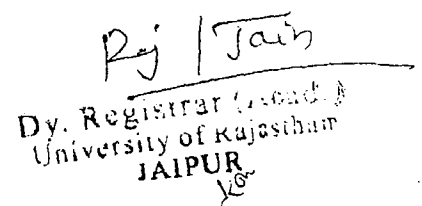 Raj | Jain
Dy. Registrar (Acad.)
University of Rajasthan
JAIPUR